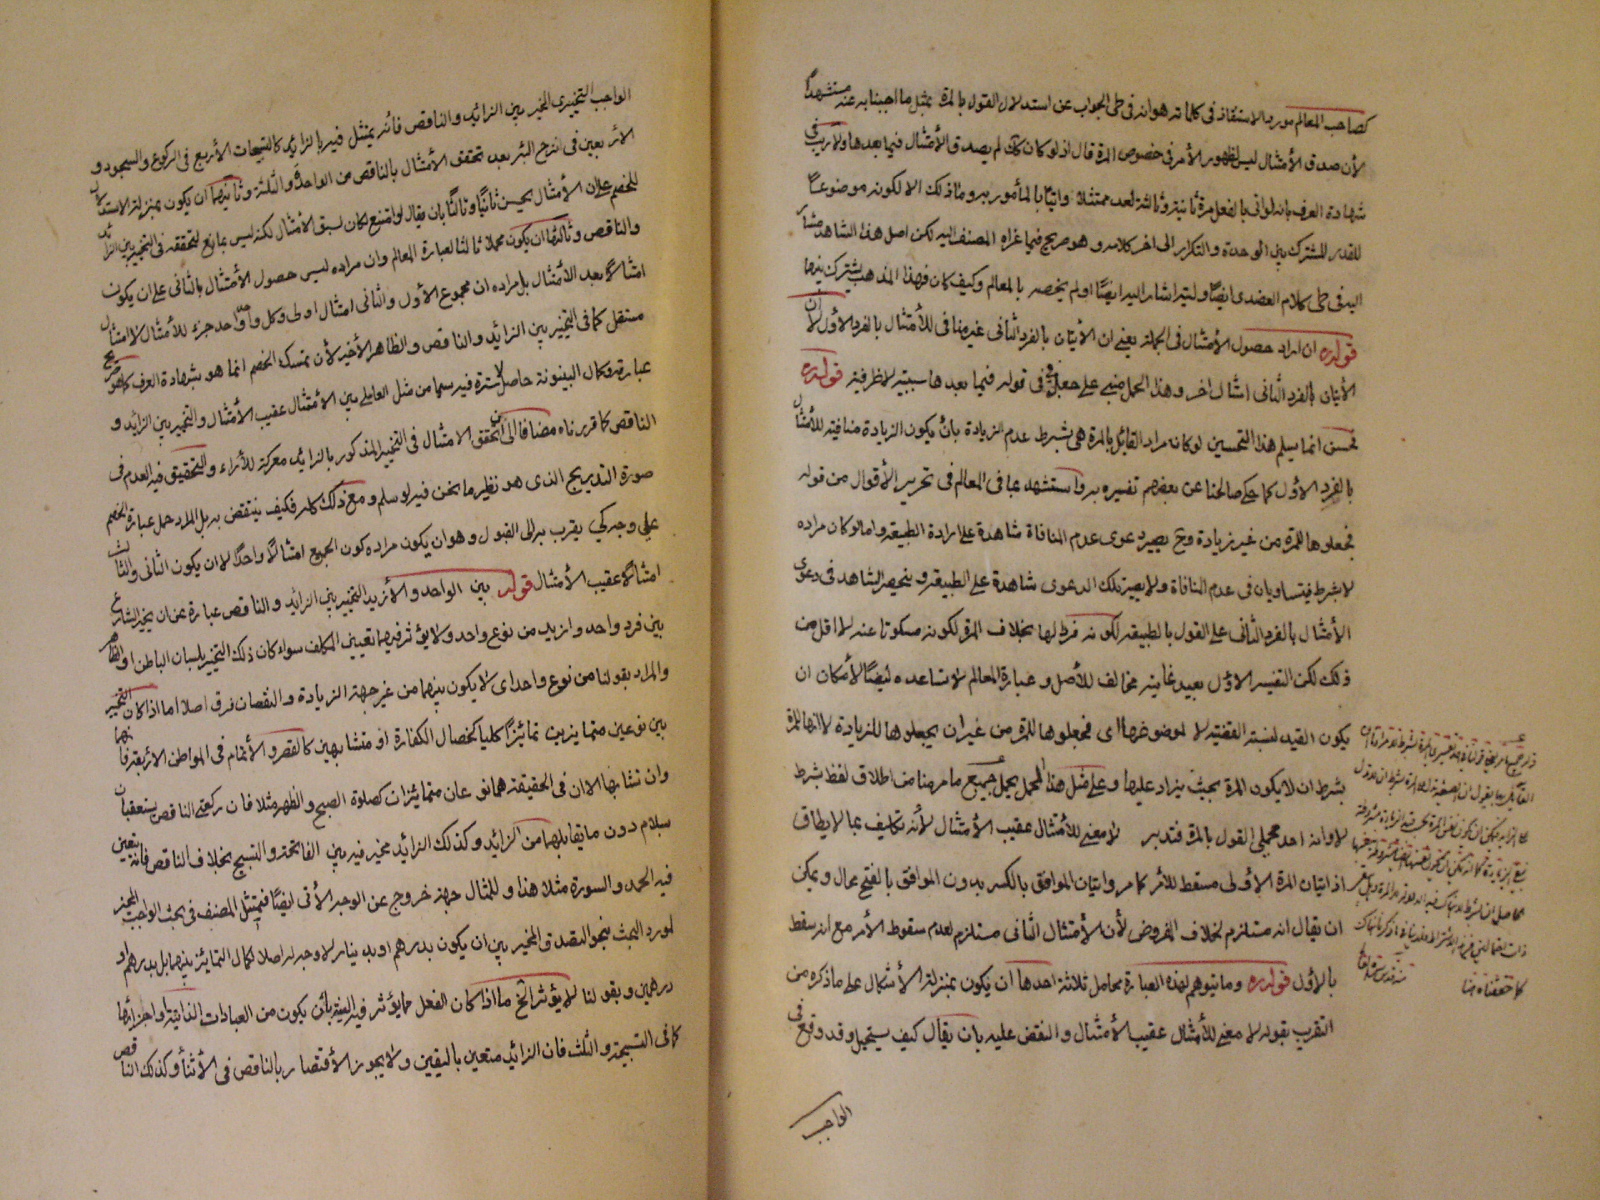 كصاحب المعالم مورد الاستفادة في كلماته هو انه في طي الجواب عن استدلال القول بالمرة بمثل ما اجبنا به عنه مستشهداً
لأن صدق الأمتثال ليس لظهور الأمر في خصوص المرة قال اذ لو كان كك لم يصدق الأمتثال فيما بعدها ولا ريب في
شهادة العرف بانه لو اتى بالفعل مرة ثانية وثالثة لعد ممتثلا واتيًا بالمأمور به وما ذلك الا لكونه موضوعاً
للقدر المشترك بين الوحدة والتكرار الى اخر كلامه وهو صريح فيما عزاه المصنف اليه لكن اصل هذا الشاهد مشار
اليه في طي كلام العضدي ايضًا وليته اشار اليه ايضًا او لم يخصه بالمعالم وكيف كان فهذا المذهب يشترك بينها
قوله ان اراد حصول الأمتثال في الجملة يعني ان الأتيان بالفرد الثاني غير مناف للأمتثال بالفرد الأول لأن
الأتيان بالفرد الثاني امتثال اخر وهذا الحمل مبني على جعل في في قوله فيما بعدها سببية لا ظرفية قوله
فحسن انما يسلم هذا التحسين لو كانه مراد القائل بالمرة هي بشرط عدم الزيادة بان يكون الزيادة منافية للأمتثال
بالفرد الأول كما حكي صالحنا عن بعضهم تفسيره به واستشهد بما في المعالم في تحرير الأقوال من قوله
فجعلوها للمرة من غير زيادة وح يصير دعوى عدم المنافاة شاهدة على ارادة الطبيعة واما لو كان مراده
لا بشرط فيتساويان في عدم المنافاة ولا يصير تلك الدعوى شاهدة على الطبيعة وينحصر الشاهد في دعوى
الأمتثال بالفرد الثاني على القول بالطبيعة لكونه فردا لها بخلاف المرة لكونه مسكوتا عنه لا اقل من
ذلك لكن التفسير الاول بعيد غايته مخالف للأصل وعبارة المعالم لا تساعده ايضًا لأمكان ان
يكون القيد لنسبة القضية لا لموضوعها اى فجعلوها للمرة من غير ان يجعلوها للزيادة لا انها للمرة
بشرط ان لا يكون المرة بحيث يزاد عليها وعلى مثل هذا المحمل يحمل جميع ما مر هنا من اطلاق لفظ بشرط
لا وانه احد محملي القول بالمرة فتدبر لا معنى للأمتثال عقيب الأمتثال لأنه تكليف بما لا يطاق
اذ اتيان المرة الأولى مسقط للأمر كما مر واتيان الموافق بالكسر بدون الموافق بالفتح محال ويمكن
ان يقال انه مستلزم لخلاف الفرض لأن الأمتثال الثاني مستلزم لعدم سقوط الأمر مع انه سقط
بالأول قوله وما يتوهم لهذه العبارة محامل ثلاثة احدها ان يكون بمنزلة الأشكال على ما ذكره من
التقريب بقوله لا معنى للأمتثال عقيب الأمتثال والنقض عليه بان يقال كيف يستحيل وقد وقع في
الواجب
كما حققناه هنا
الواجب التخييري المخير بين الزائد والناقص فانه يمتثل فيه بالزائد كالتسبيحات الأربع في الركوع والسجود و
الاربعين في النزح البئر بعد تحقق الأمتثال بالناقص من الواحدة والثلثة وثانيهما ان يكون بمنزلة الاستدلال
للخصم على ان الأمتثال يحسن ثانيًا وثالثًا بان يقال لو امتنع لكان لسبق الامتثال لكنه ليس بمانع لتحققه في التخيير بين الزائد
والناقص وثالثها ان يكون محملا ثالثا لعبارة المعالم وان مراده ليس حصول الأمتثال بالثاني على ان يكون
امتثالا بعد الأمتثال بل مراده ان مجموع الأول والثاني امتثال اولى وكل واحد جزء للأمتثال لا امتثال
مستقل كما في التخيير بين الزائد والناقص والظاهر الأخير لأن تمسك الخصم انما هو بشهادة العرف كما هو صريح
عبارته وكمال البينونة حاصل لا سترة فيه سيما من مثل العاملي بين الأمتثال عقيب الأمتثال والتخيير بين الزائد و
الناقص كما قررناه مضافا الى ان تحقق الامتثال في التخيير المذكور بالزائد معركة للأراء والتحقيق فيه العدم في
صورة التدريج الذي هو نظير ما نحن فيه لو سلم ومع ذلك كله فكيف ينتقض به بل المراد حمل عبارة الخصم
على وجه كي يقرب به الى القبول وهو ان يكون مراده كون الجميع امتثالًا واحدًا لا ان يكون الثاني والثالث
امتثالا عقيب الأمتثال قوله بين الواحد والأزيد التخيير بين الزائد والناقص عبارة عن ان يخير الشارع
بين فرد واحد وازيد من نوع واحد ولا يؤثر فيهما تعيين المكلف سواء كان ذلك التخيير بلسان الباطن او الظاهر
والمراد بقولنا من نوع واحد اى لا يكون بينهما من غير جهة الزيادة والنقصان فرق اصلا اما اذا كان التخيير
بين نوعين متمايزين تمايزًا كليا كخصال الكفارة او متشابهين كالقصر والأتمام في المواطن الأربعة فانهما
وان تشابها الا ان في الحقيقة هما نوعان متمايزان كصلوة الصبح والظهر مثلا فان ركعتي الناقص يتعقبان
بسلام دون ما يقابلهما من الزائد وكذلك الزائد مخير فيه بين الفاتحة والتسبيح بخلاف الناقص فانه يتعين
فيه الحمد والسورة مثلا هذا وللمثال جهة خروج عن الوجه الأتي ايضًا فيمثل المصنف في بحث الواجب المخير
لمورد البحث بنحو التصدق المخير بين ان يكون بدرهم او بدينار لا وجه له اصلا لكمال التمايز بينهما بل بدرهم و
درهمين وبقولنا لا يؤثر الخ ما اذا كان الفعل مما يؤثر فيه النية بان يكون من العبادات الذاتية او اجزائها
كما في التسبيحة والثلث فان الزائد متعين باليقين ولا يجوز الأقتصار بالناقص في الأثناء وكذلك الناقص